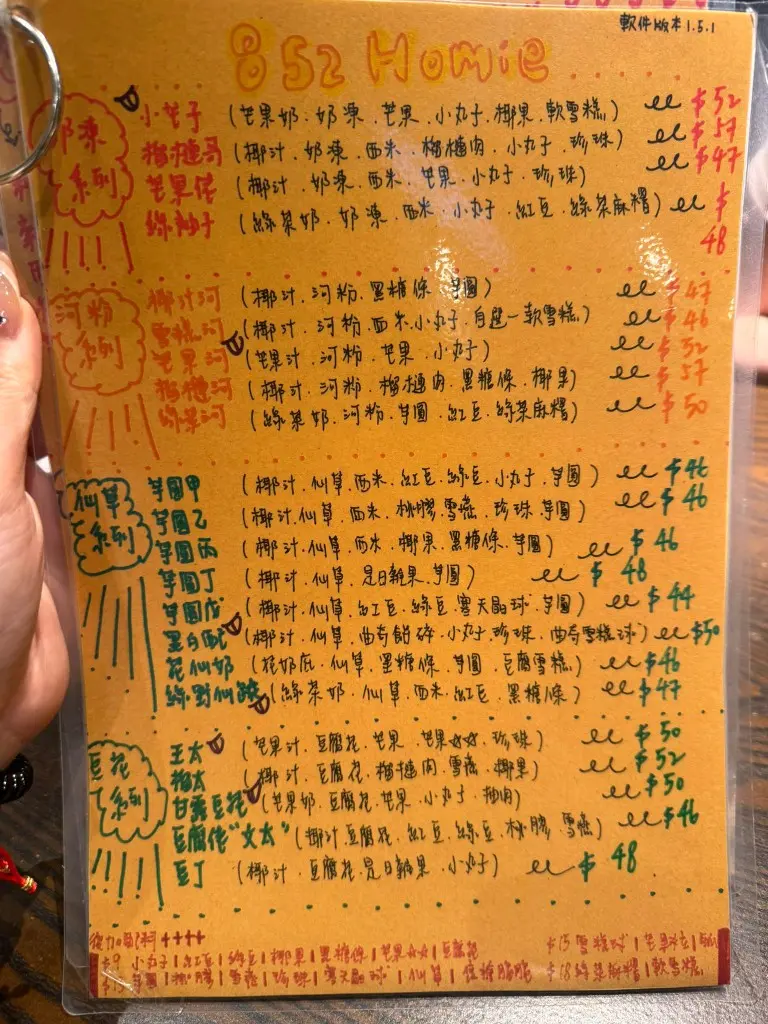 軟件版本1.5.1
852 Homie
奶凍系列
小芒子 (芒果奶.奶凍.芒果.小丸子.椰果.軟雪糕) $52
榴槤哥 (椰汁.奶凍.西米.榴槤肉.小丸子.珍珠) $57
芒果佬 (椰汁.奶凍.西米.芒果.小丸子.珍珠) $47
綠柚子 (綠茶奶.奶凍.西米.小丸子.紅豆.綠茶麻糬) $48
河粉系列
椰汁河 (椰汁.河粉.黑糖條.芋圓) $47
雪糕河 (椰汁.河粉.西米.小丸子.自選一軟雪糕) $46
芒果河 (芒果汁.河粉.芒果.小丸子) $52
榴槤河 (椰汁.河粉.榴槤肉.黑糖條.椰果) $57
綠茶河 (綠茶奶.河粉.芋圓.紅豆.綠茶麻糬) $50
仙草系列
芋圓甲 (椰汁.仙草.西米.紅豆.綠豆.小丸子.芋圓) $46
芋圓乙 (椰汁.仙草.西米.桃膠.雪燕.珍珠.芋圓) $46
芋圓丙 (椰汁.仙草.西米.椰果.黑糖條.芋圓) $46
芋圓丁 (椰汁.仙草.是日雜果.芋圓) $48
芋圓戊 (椰汁.仙草.紅豆.綠豆.寒天晶球.芋圓) $44
黑白配 (椰汁.仙草.曲奇餅碎.小丸子.珍珠.曲奇雪糕球) $50
花仙奶 (花奶底.仙草.黑糖條.芋圓.豆腐雪糕) $46
綠野仙蹤 (綠茶奶.仙草.西米.紅豆.黑糖條) $47
豆花系列
王太 (芒果汁.豆腐花.芒果.芒果☆☆.珍珠) $50
榴太 (椰汁.豆腐花.榴槤肉.雪燕.椰果) $52
甘露豆花 (芒果奶.豆腐花.芒果.小丸子.柚肉) $50
豆腐佬"文太" (椰汁.豆腐花.紅豆.綠豆.桃膠.雪燕) $46
豆丁 (椰汁.豆腐花.是日雜果.小丸子) $48
後加配料++++
$9 小丸子|紅豆|綠豆|椰果|黑糖條|芒果☆☆|豆腐花
$15 雪糕球|芒果冰
芋圓|桃膠|雪燕|珍珠|寒天晶球|仙草
$18 綠茶麻糬|軟雪糕